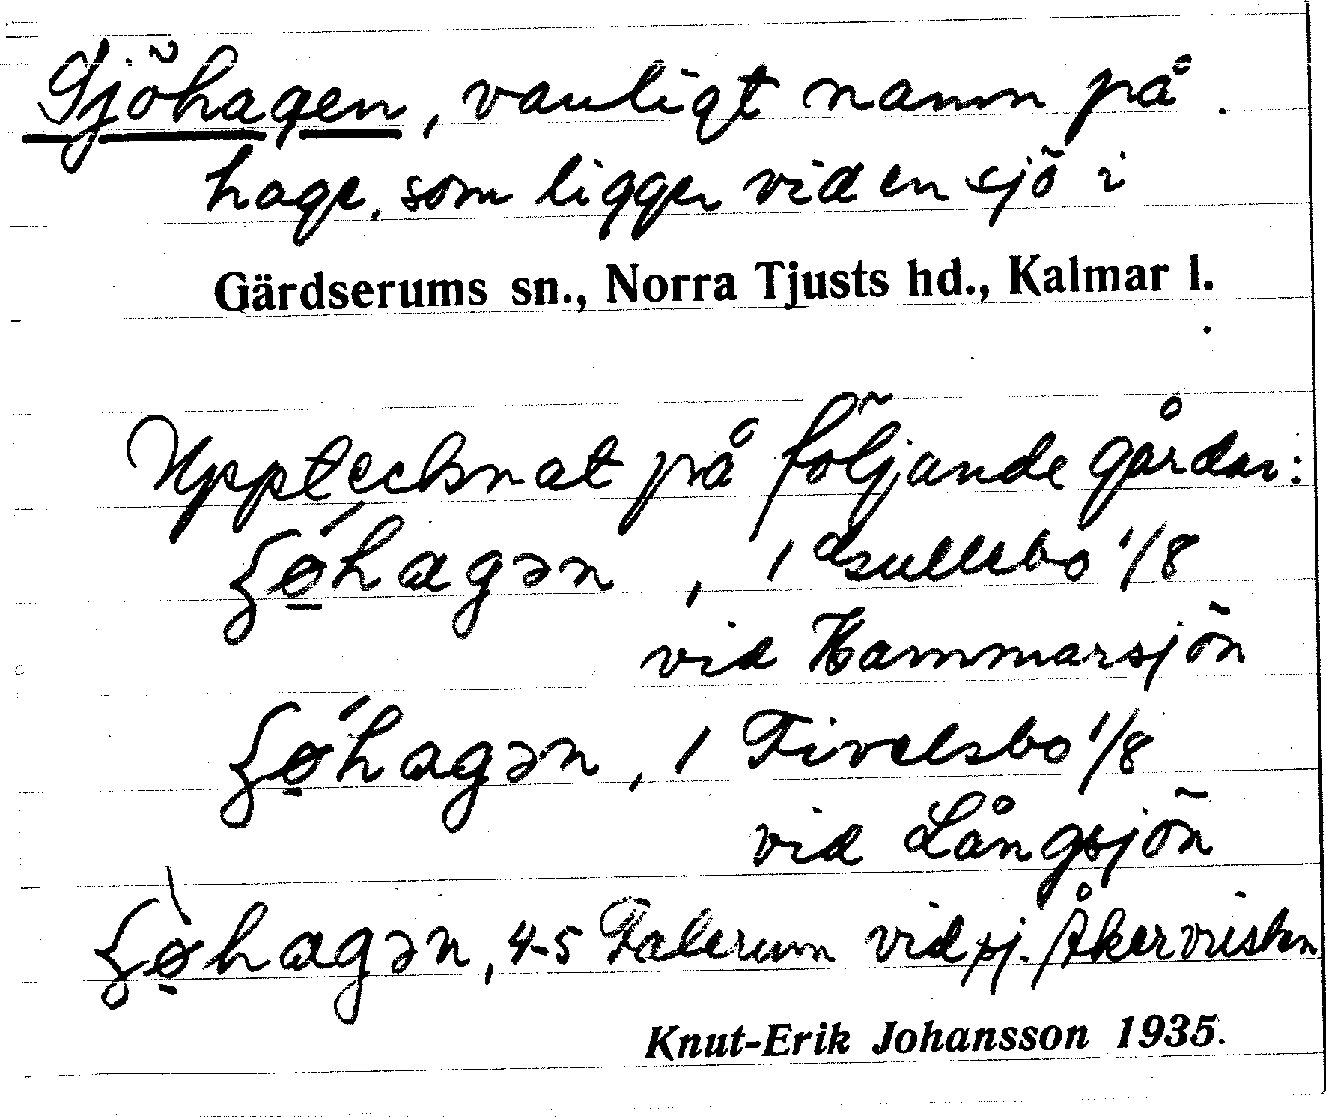 Sjöhagen, vanligt namn på
hage, som ligger vid en sjö i
Gärdserums sn., Norra Tjusts hd., Kalmar l.
Upptecknat på följande gårdar:
ʃǿ̠hagən, 1 1/8
vid Hammarsjön
ʃǿ̠hagən, 1 Fivelsbo 1/8
vid Långsjön
ʃø̠̀hagən, 4-5 Falerum vid sj. Åkervristen
Knut-Erik Johansson 1935.